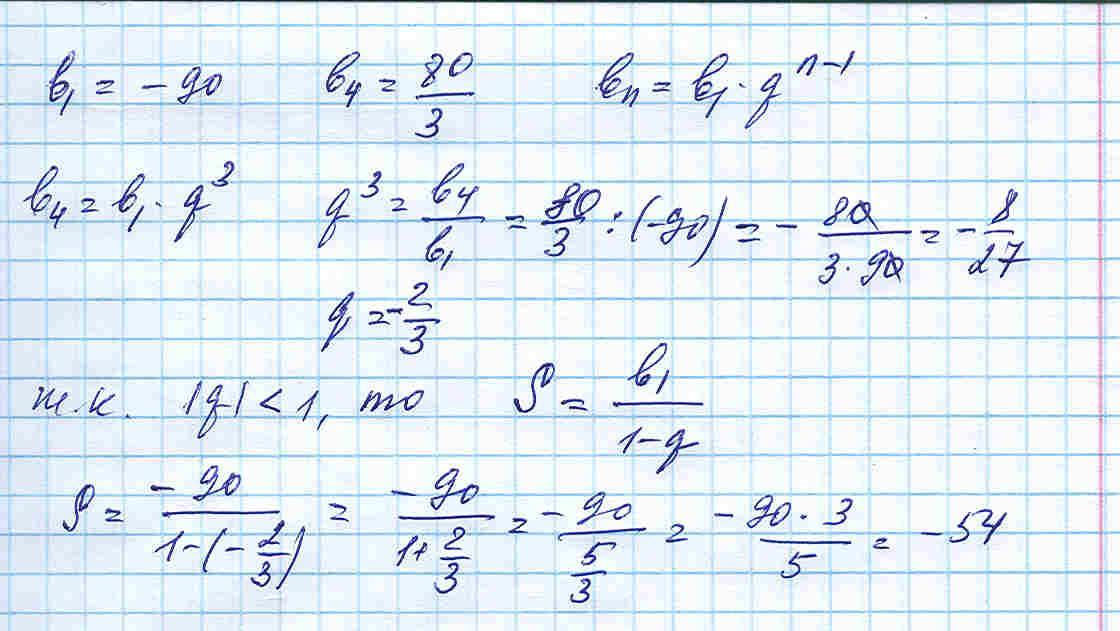 в₁ = −90 в₄ = 80/3 вₙ = в₁ · qⁿ⁻¹
в₄ = в₁ · q³ q³ = в₄/в₁ = 80/3 : (−90) = − 80/(3·90) = − 8/27
q = −2/3
т.к. |q| < 1, то S = в₁/(1−q)
S = −90/(1−(−2/3)) = −90/(1+2/3) = −90/(5/3) = −90·3/5 = −54